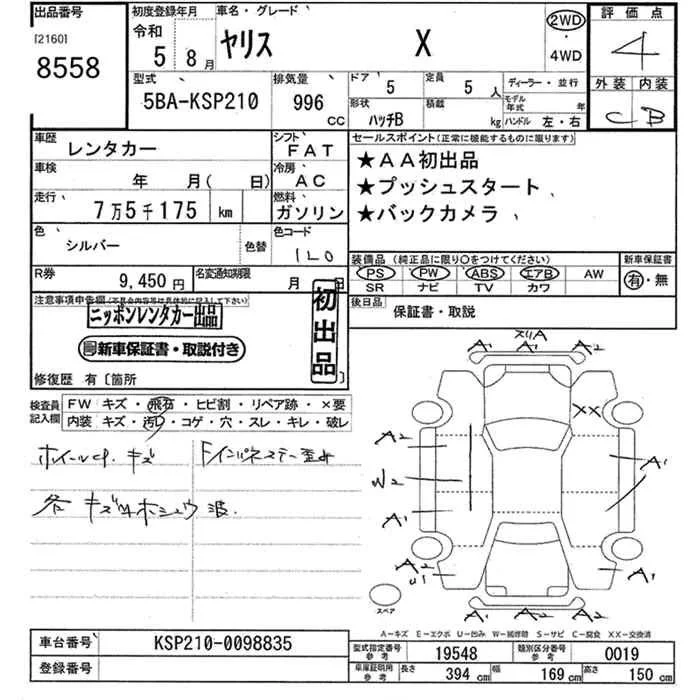 出品番号
[2160]
8558
初度登録年月
令和
5 8月
車名・グレード
ヤリス X
2WD
・
4WD
評価点
4
外装 内装
C B
型式
5BA-KSP210
排気量
996
CC
ドア
5
定員
5 人
形状
ハッチB
積載
kg
ディーラー・並行
モデル年式 年
ハンドル 左・右
車歴
レンタカー
シフト
FAT
車検
年 月( 日)
冷房
AC
走行
7万5千175 km
燃料
ガソリン
色
シルバー
色替
色コード
1L0
R券
9,450円
名変通知期限
月 日
セールスポイント(正常に機能するものに限ります)
★AA初出品
★プッシュスタート
★バックカメラ
装備品 (純正品に限り○をつけてください)
PS PW ABS エアB AW
SR ナビ TV カワ
新車保証書
有・無
後日品
保証書・取説
注意事項申告欄(不具合内容等は具体的に記入して下さい)
ニッポンレンタカー出品
新車保証書・取説付き
初出品
修復歴 有〔箇所
検査員記入欄
FW キズ・飛石・ヒビ割・リペア跡・×要
内装 キズ・汚レ・コゲ・穴・スレ・キレ・破レ
ホイールcp.キズ
Fインパネステー歪み
各キズ凹ホシュウ波.
スリA
A1 A1 A2
XX
A2
W2
A1
A1
A2
U1
A1
A1 A2
スペア
A-キズ E-エクボ U-凹み W-補修跡 S-サビ C-腐食 XX-交換済
車台番号
KSP210-0098835
登録番号
型式指定番号
参考
19548
類別区分番号
参考
0019
車庫証明用
参考
長さ
394 cm
幅
169 cm
高さ
150 cm